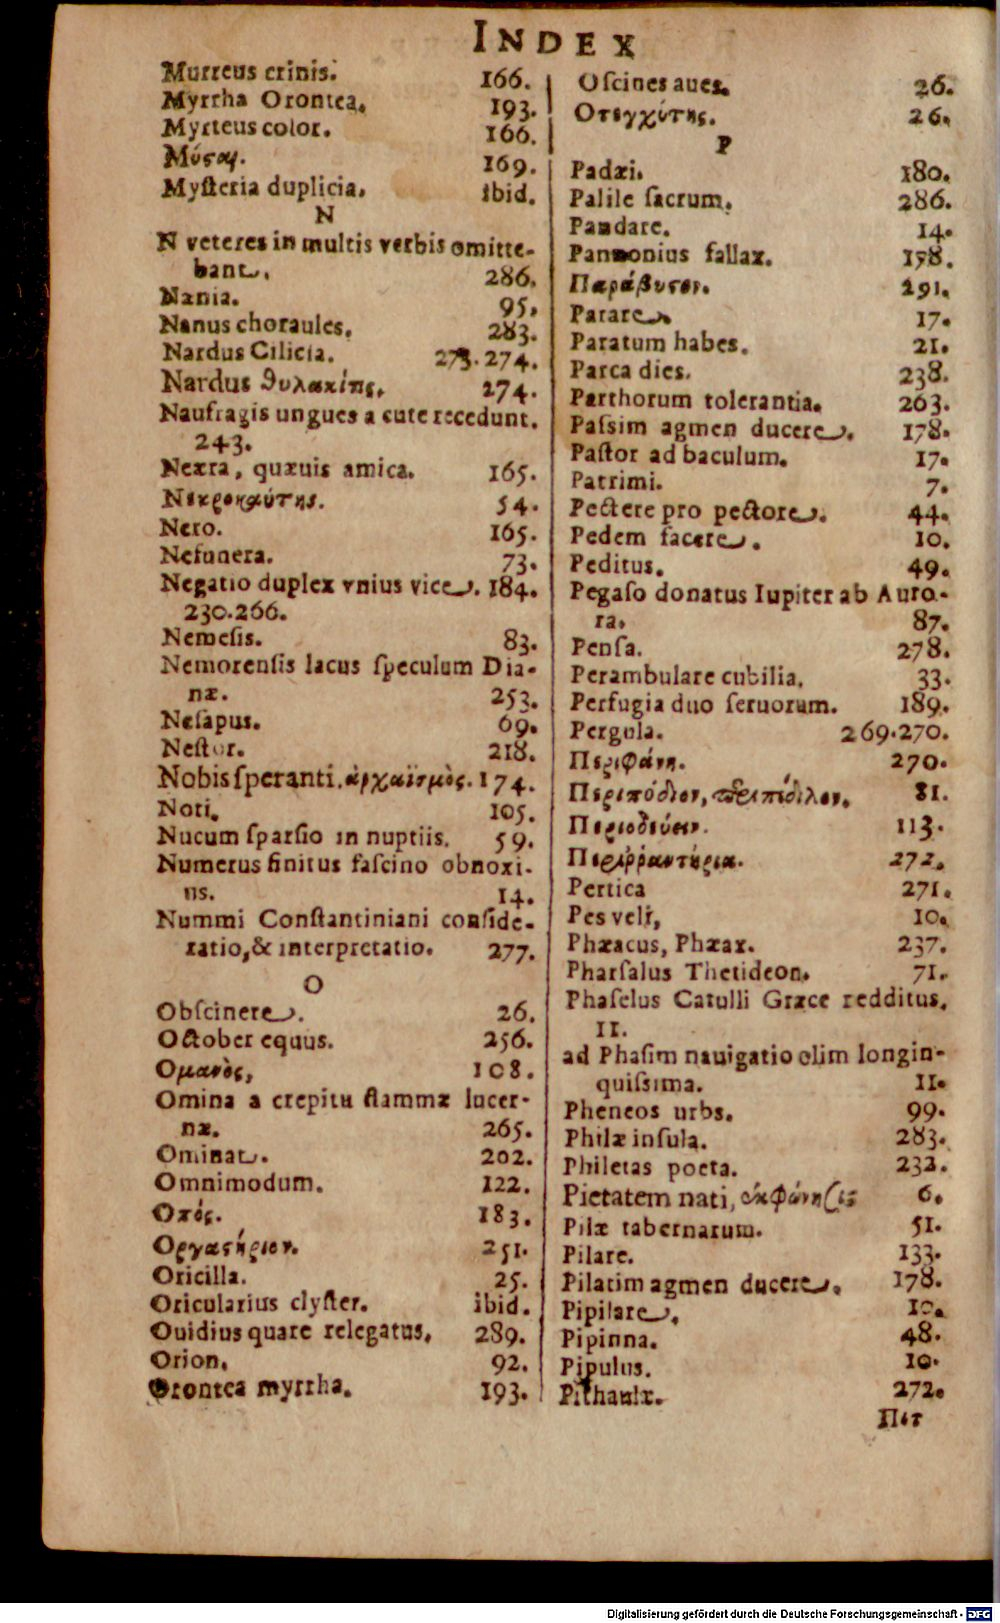 INDEX
Murreus crinis. 166.
Myrrha Orontea. 193.
Myrteus color. 166.
Μύϛαι. 169.
Myſteria duplicia. ibid.
N
N veteres in multis verbis omitte-
bant. 286.
Nænia. 95.
Nanus choraules. 283.
Nardus Cilicia. 273.274.
Nardus θυλακίτης. 274.
Naufragis ungues a cute recedunt.
243.
Neæra, quæuis amica. 165.
Νεκροκαύτης. 54.
Nero. 165.
Nefunera. 73.
Negatio duplex vnius vice. 184.
230.266.
Nemeſis. 83.
Nemorenſis lacus ſpeculum Dia-
næ. 253.
Neſapus. 69.
Neſtor. 218.
Nobis ſperanti. ἀρχαϊσμὸς. 174.
Noti. 105.
Nucum ſparſio in nuptiis. 59.
Numerus finitus faſcino obnoxi-
us. 14.
Nummi Conſtantiniani conſide-
ratio, & interpretatio. 277.
O
Obſcinere. 26.
October equus. 256.
Ομανὸς, 108.
Omina a crepitu flammæ lucer-
næ. 265.
Ominat. 202.
Omnimodum. 122.
Οπός. 183.
Οργαϛήριον. 251.
Oricilla. 25.
Oricularius clyſter. ibid.
Ouidius quare relegatus. 289.
Orion. 92.
Orontea myrrha. 193.
Oſcines aues. 26.
Οτεγχύτης. 26.
P
Padæi. 180.
Palile ſacrum. 286.
Pandare. 14.
Pannonius fallax. 178.
Παράβυϛον. 291.
Parare 17.
Paratum habes. 21.
Parca dies. 238.
Parthorum tolerantia. 263.
Paſsim agmen ducere. 178.
Paſtor ad baculum. 17.
Patrimi. 7.
Pectere pro pectore. 44.
Pedem facere. 10.
Peditus. 49.
Pegaſo donatus Iupiter ab Auro-
ra. 87.
Penſa. 278.
Perambulare cubilia. 33.
Perfugia duo ſeruorum. 189.
Pergula. 269.270.
Περιφάνη. 270.
Περιπόδιον, περιπέδιλον. 81.
Περιοδεύειν. 113.
Περιῤῥαντήρια. 272.
Pertica 271.
Pes veli, 10.
Phæacus, Phæax. 237.
Pharſalus Thetideon. 71.
Phaſelus Catulli Græce redditus.
11.
ad Phaſim nauigatio olim longin-
quiſsima. 11.
Pheneos urbs. 99.
Philæ inſula. 283.
Philetas poeta. 232.
Pietatem nati, ἐκφώνησις 6.
Pilæ tabernarum. 51.
Pilare. 133.
Pilatim agmen ducere. 178.
Pipilare. 10.
Pipinna. 48.
Pipulus. 10.
Pithaulæ. 272.
Πιτ
Digitalisierung gefördert durch die Deutsche Forschungsgemeinschaft - DFG